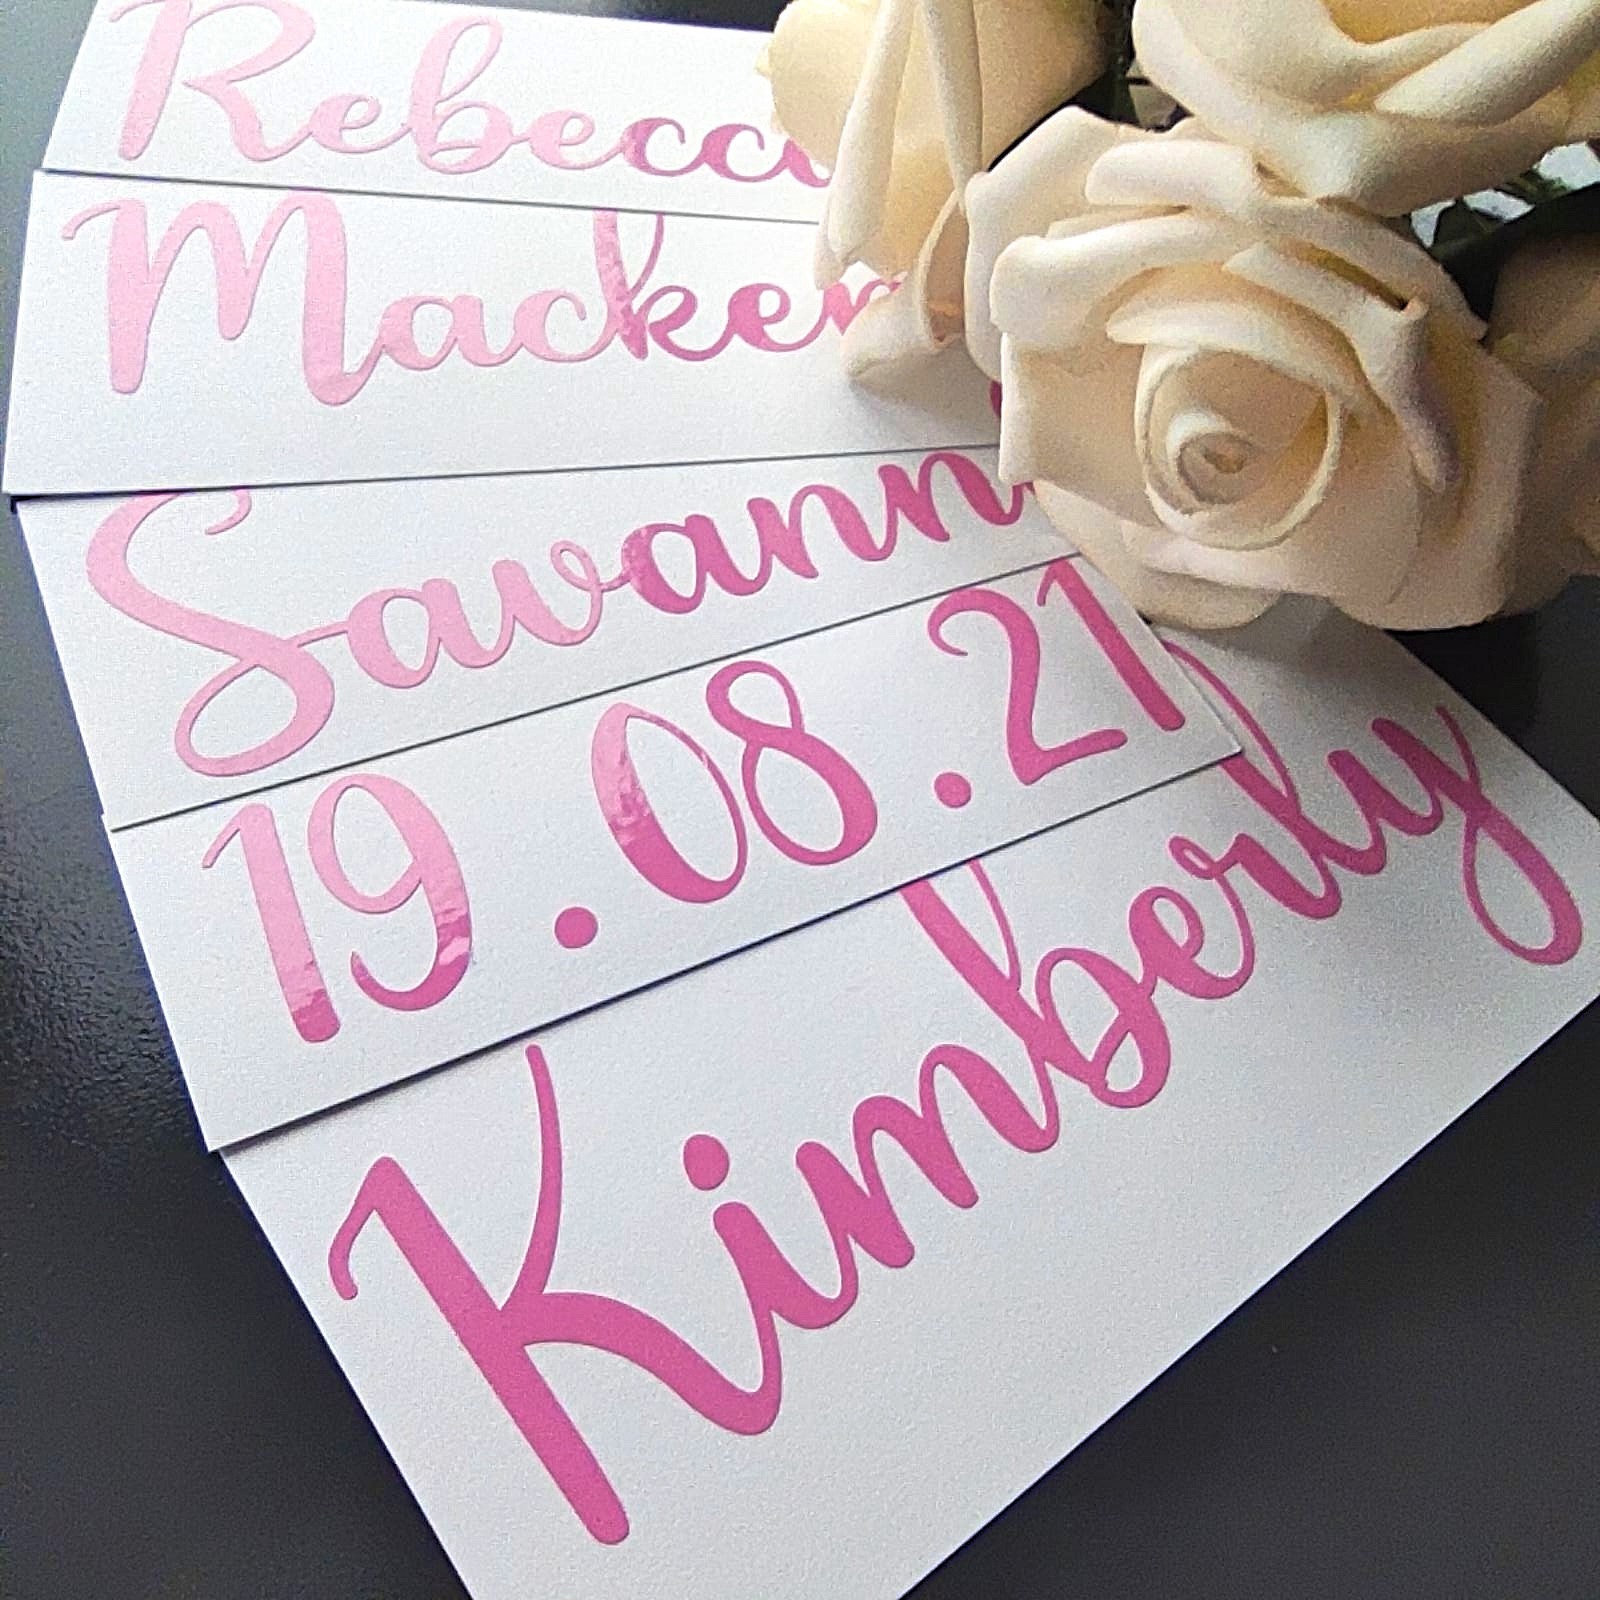 Rebecc
Macken
Savann
19.08.21
Kimberly